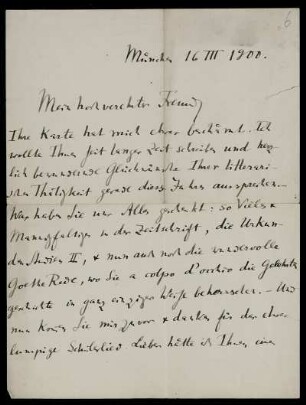 6
München 16 III 1900.
Mein hochverehrter Freund,
Ihre Karte hat mich etwas beschämt. Ich
wollte Ihnen seit langer Zeit schreiben und herz-
lich bewundernde Glückwünsche Ihrer litterari-
schen Thätigkeit gerade dieses Jahres aussprechen.
Was haben Sie uns Alles geschenkt: so Vieles &
Mannigfaltiges in der Zeitschrift, die Urkun-
den Studien II, & nun auch noch die wundervolle
Goethe Rede, wo Sie a colpo d'occhio die
in ganz einziger Weise beherrschen. – Und
nun kommen Sie mir zuvor & danken für das etwas
lumpige Schülerlied. Lieber hätte ich Ihnen einen